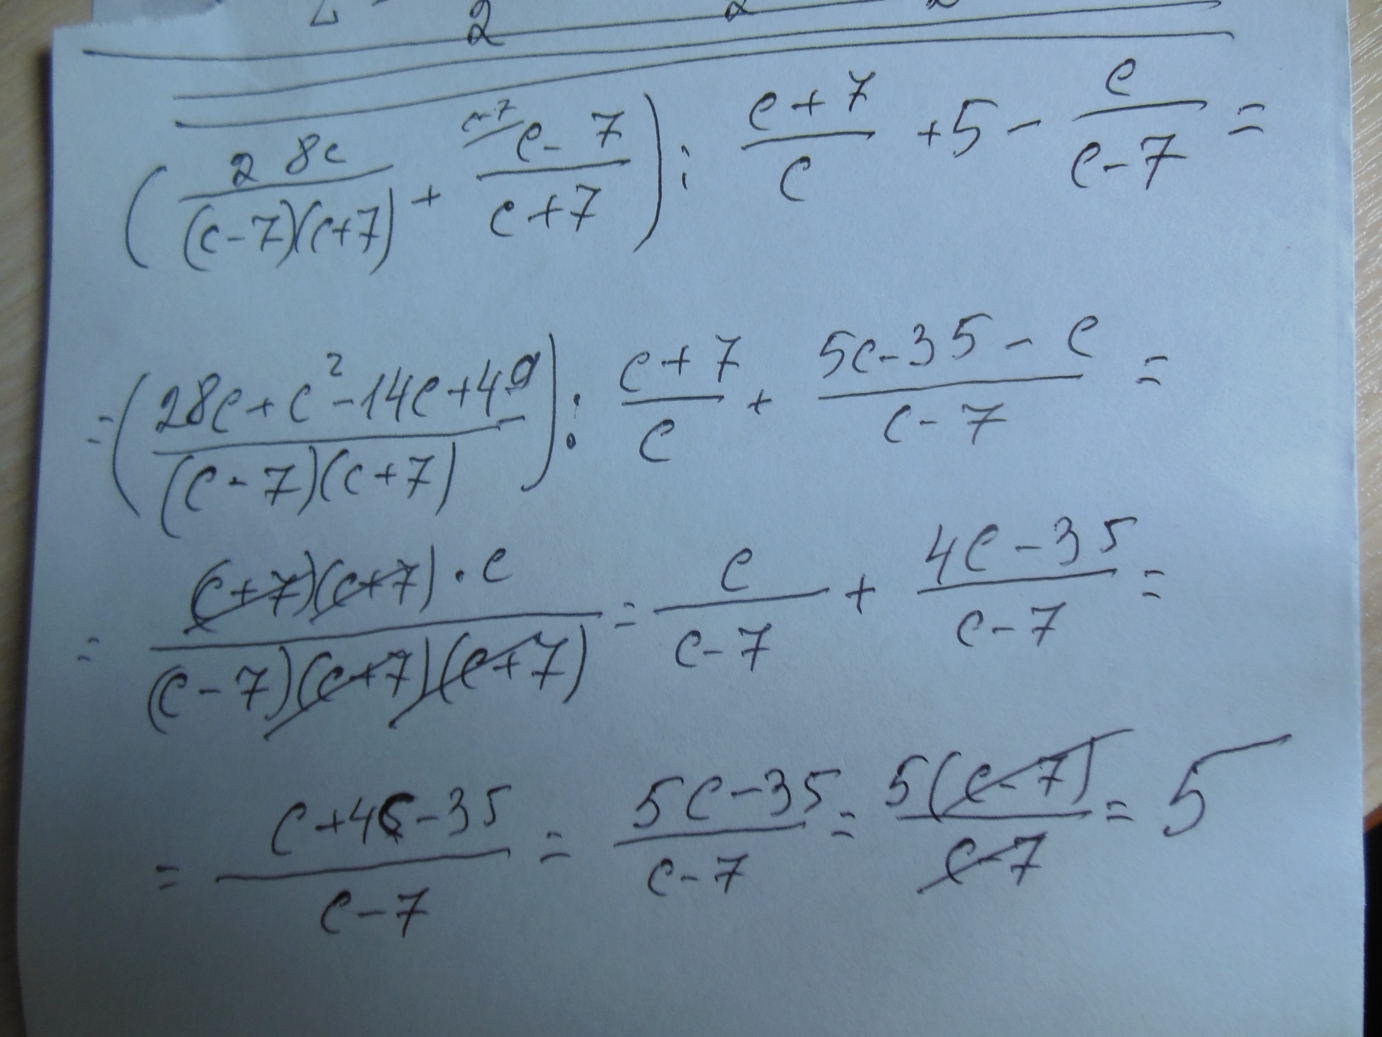 2 2 2
( 28c / (c-7)(c+7) + c-7 c-7 / c+7 ) : c+7 / c + 5 - c / c-7 =
= ( 28c + c² - 14c + 49 / (c-7)(c+7) ) : c+7 / c + 5c-35-c / c-7 =
= (c+7)(c+7)·c / (c-7)(c+7)(c+7) = c / c-7 + 4c-35 / c-7 =
= c+4c-35 / c-7 = 5c-35 / c-7 = 5(c-7) / c-7 = 5